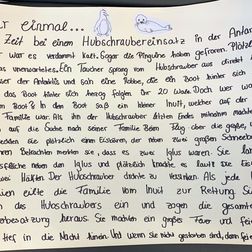 er einmal...
Zeit bei einem Hubschraubereinsatz in der Antar
er war es verdammt kalt. Sogar die Pinguine haben gefroren. Plötz
as unerwartetes. Ein Taucher sprang vom Hubschrauber aus direkt
der der Antarktis und sah eine Robbe, die ein Boot hinter sich
das Boot hinter sich herzog. Folgten ihr 20 Wale. Doch wer wa
m Boot? In dem Boot saß ein kleiner Inuit, welcher auf der
Familie war. Als ihn der Hubschrauber ärzten Endes mitnahm machte
auf die Suche nach seiner Familie. Beim Flug über die große,
nden sie plötzlich einen Eisbären, der neben zwei großen Schnee
Betrachten merkten sie, dass es zwei Iglus waren. Sie lan
fläche neben den Iglus und plötzlich knackte es laut. Die Eis
zwei Hälften. Der Hubschrauber drohte zu versinken. Als jede
ien eilte die Familie vom Inuit zur Rettung. S
des Hubschraubers ein und zogen die gesamte
besatzung heraus. Sie machten ein großes Feuer und
tief in die Nacht hinein. Und wenn sie nicht gestorben sind, dann